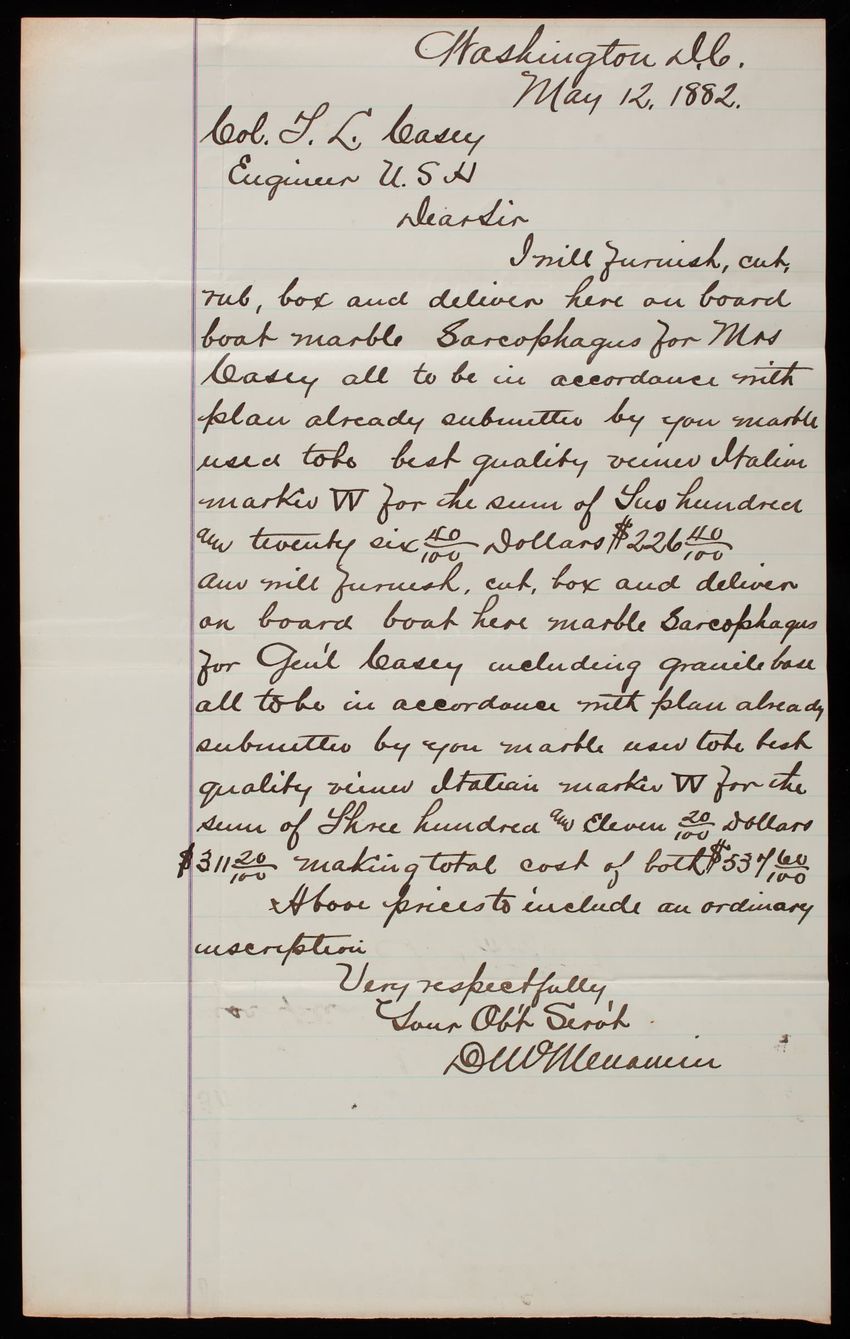 Washington D.C.
May 12, 1882.
Col. T. L. Casey
Engineer U.S A
Dear Sir
I will furnish, cut,
rub, box and deliver here on board
boat marble Sarcophagus for Mrs
Casey all to be in accordance with
plan already submitted by you marble
used to be best quality veined Italian
marked W for the sum of Two hundred
and twenty six 40/100 Dollars $226 40/100
and will furnish, cut, box and deliver
on board boat here marble Sarcophagus
for Gen'l Casey including granite base
all to be in accordance with plan already
submitted by you marble used to be best
quality veined Italian marked W for the
sum of Three hundred and Eleven 20/100 Dollars
$311 20/100 making total cost of both $537 60/100
Above prices to include an ordinary
inscription
Very respectfully
Your Ob't Serv't